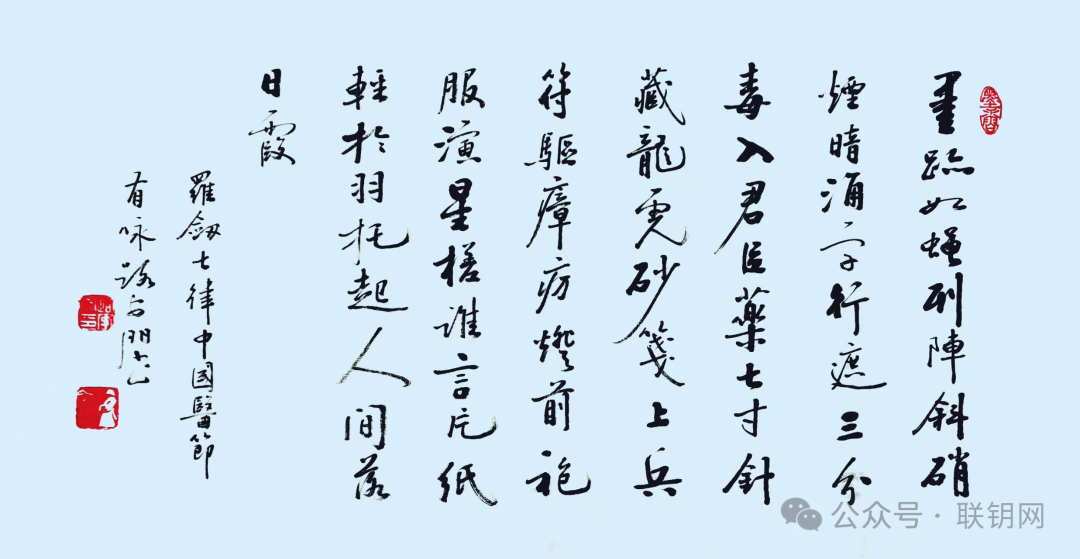 墨跡如列陣斜硝
煙暗涌字行遮三分
毒入君臣藥七寸針
藏龍虎砂箋上兵
符驅瘴疠燈前袍
服演星槎誰言片紙
輕於羽托起人間落
日霞
羅劍七律中國醫節
有咏路
公众号 · 联钥网